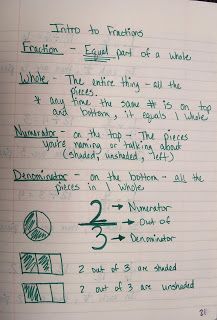 Intro to Fractions
Fraction - Equal part of a whole
Whole - The entire thing - all the
pieces.
* any time the same # is on top
and bottom, it equals 1 whole
Numerator - on the top - The pieces
you're naming or talking about
(shaded, unshaded, left)
Denominator - on the bottom - all the
pieces in 1 whole
2 → Numerator
→ Out of
3 → Denominator
2 out of 3 are shaded
2 out of 3 are unshaded